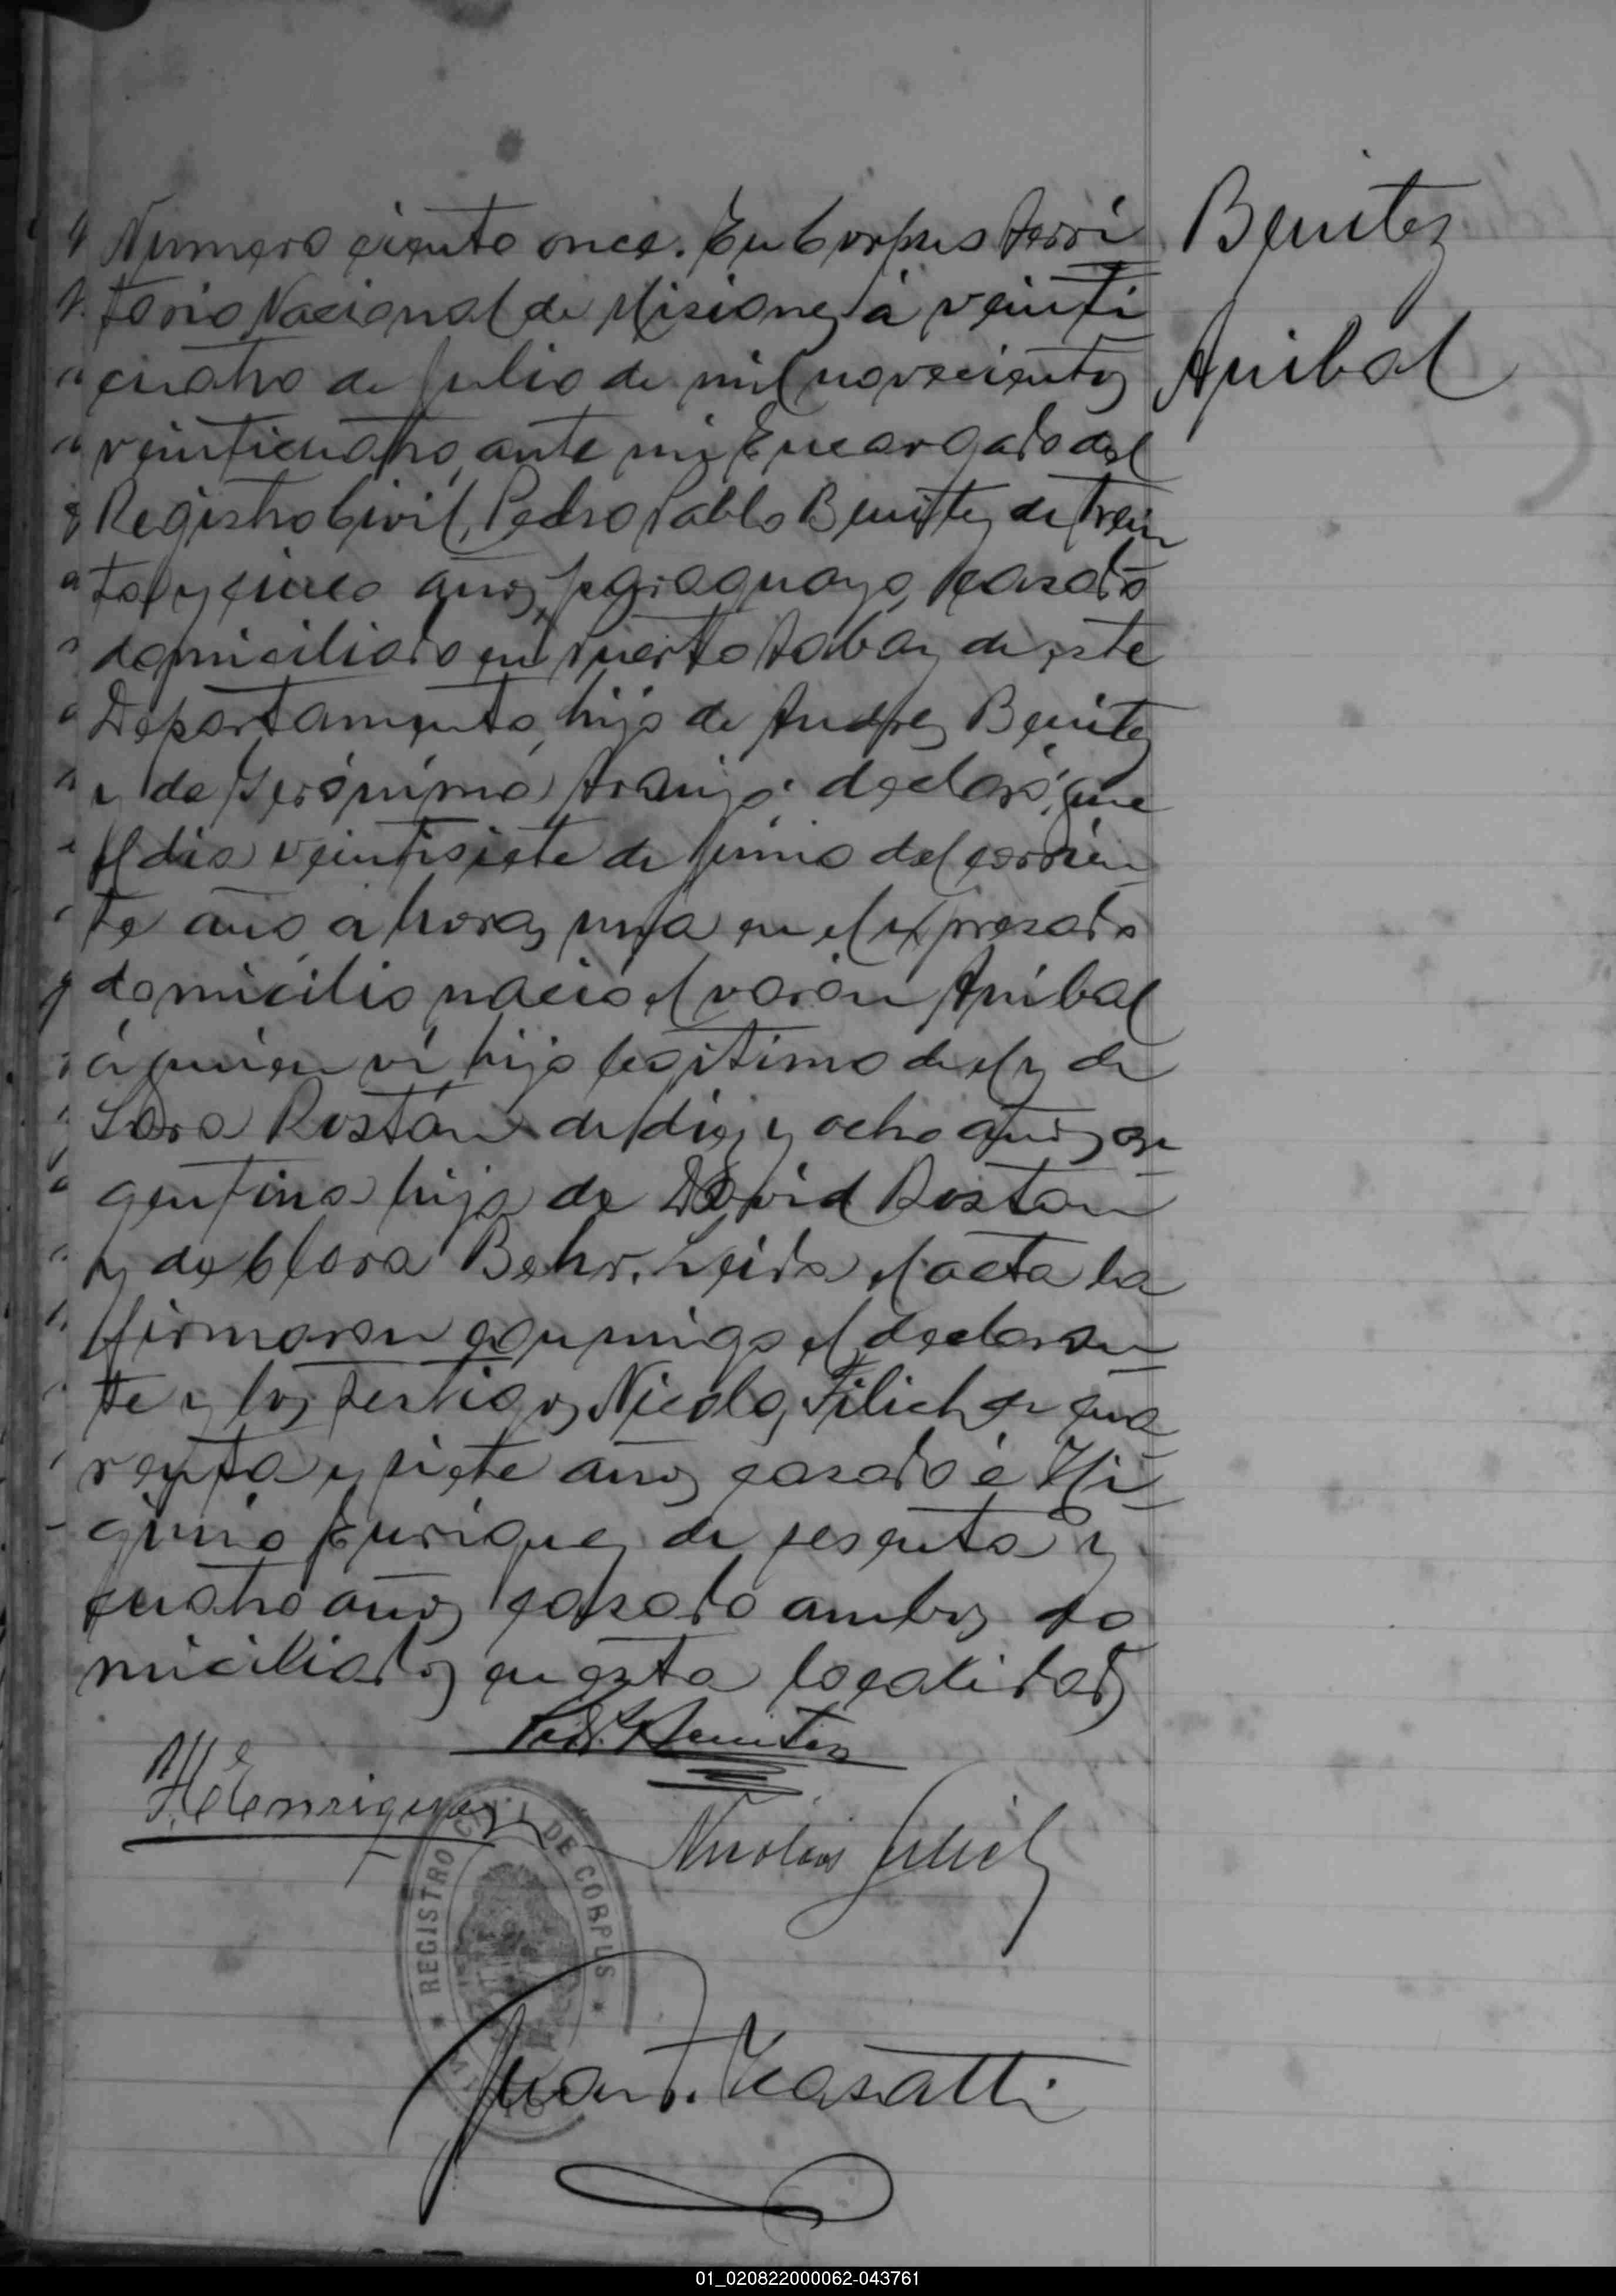 Benitez
Anibal
Numero ciento once. En Corpus Terri
torio Nacional de Misiones á veinti
cuatro de Julio de mil novecientos
veinticuatro, ante mi Encargado del
Registro Civil, Pedro Pablo Benitez de trein
ta y cinco años, paraguayo, casado
domiciliado en Puerto Tabay de este
Departamento, hijo de Andres Benitez
y de Gerónima Araujo: declaró: que
el dia veintisiete de Junio del corrien
te año a horas una en el expresado
domicilio nació el varón Anibal
á quien vi hijo legitimo de el y de
Sara Rostán de diez y ocho años, ar
gentina hija de David Rostan
y de Clara Behr. Leida el acta la
firmaron conmigo el declaran
te y los testigos Nicolas Filich de cua
renta y siete años casado é Hi
ginio Enriquez de sesenta y
cuatro años casado ambos do
miciliados en esta localidad
Ped. P. Benitez
H. Enriquez
Nicolas Filich
REGISTRO CIVIL DE CORPUS
Juan F. Casatti
01_020822000062-043761